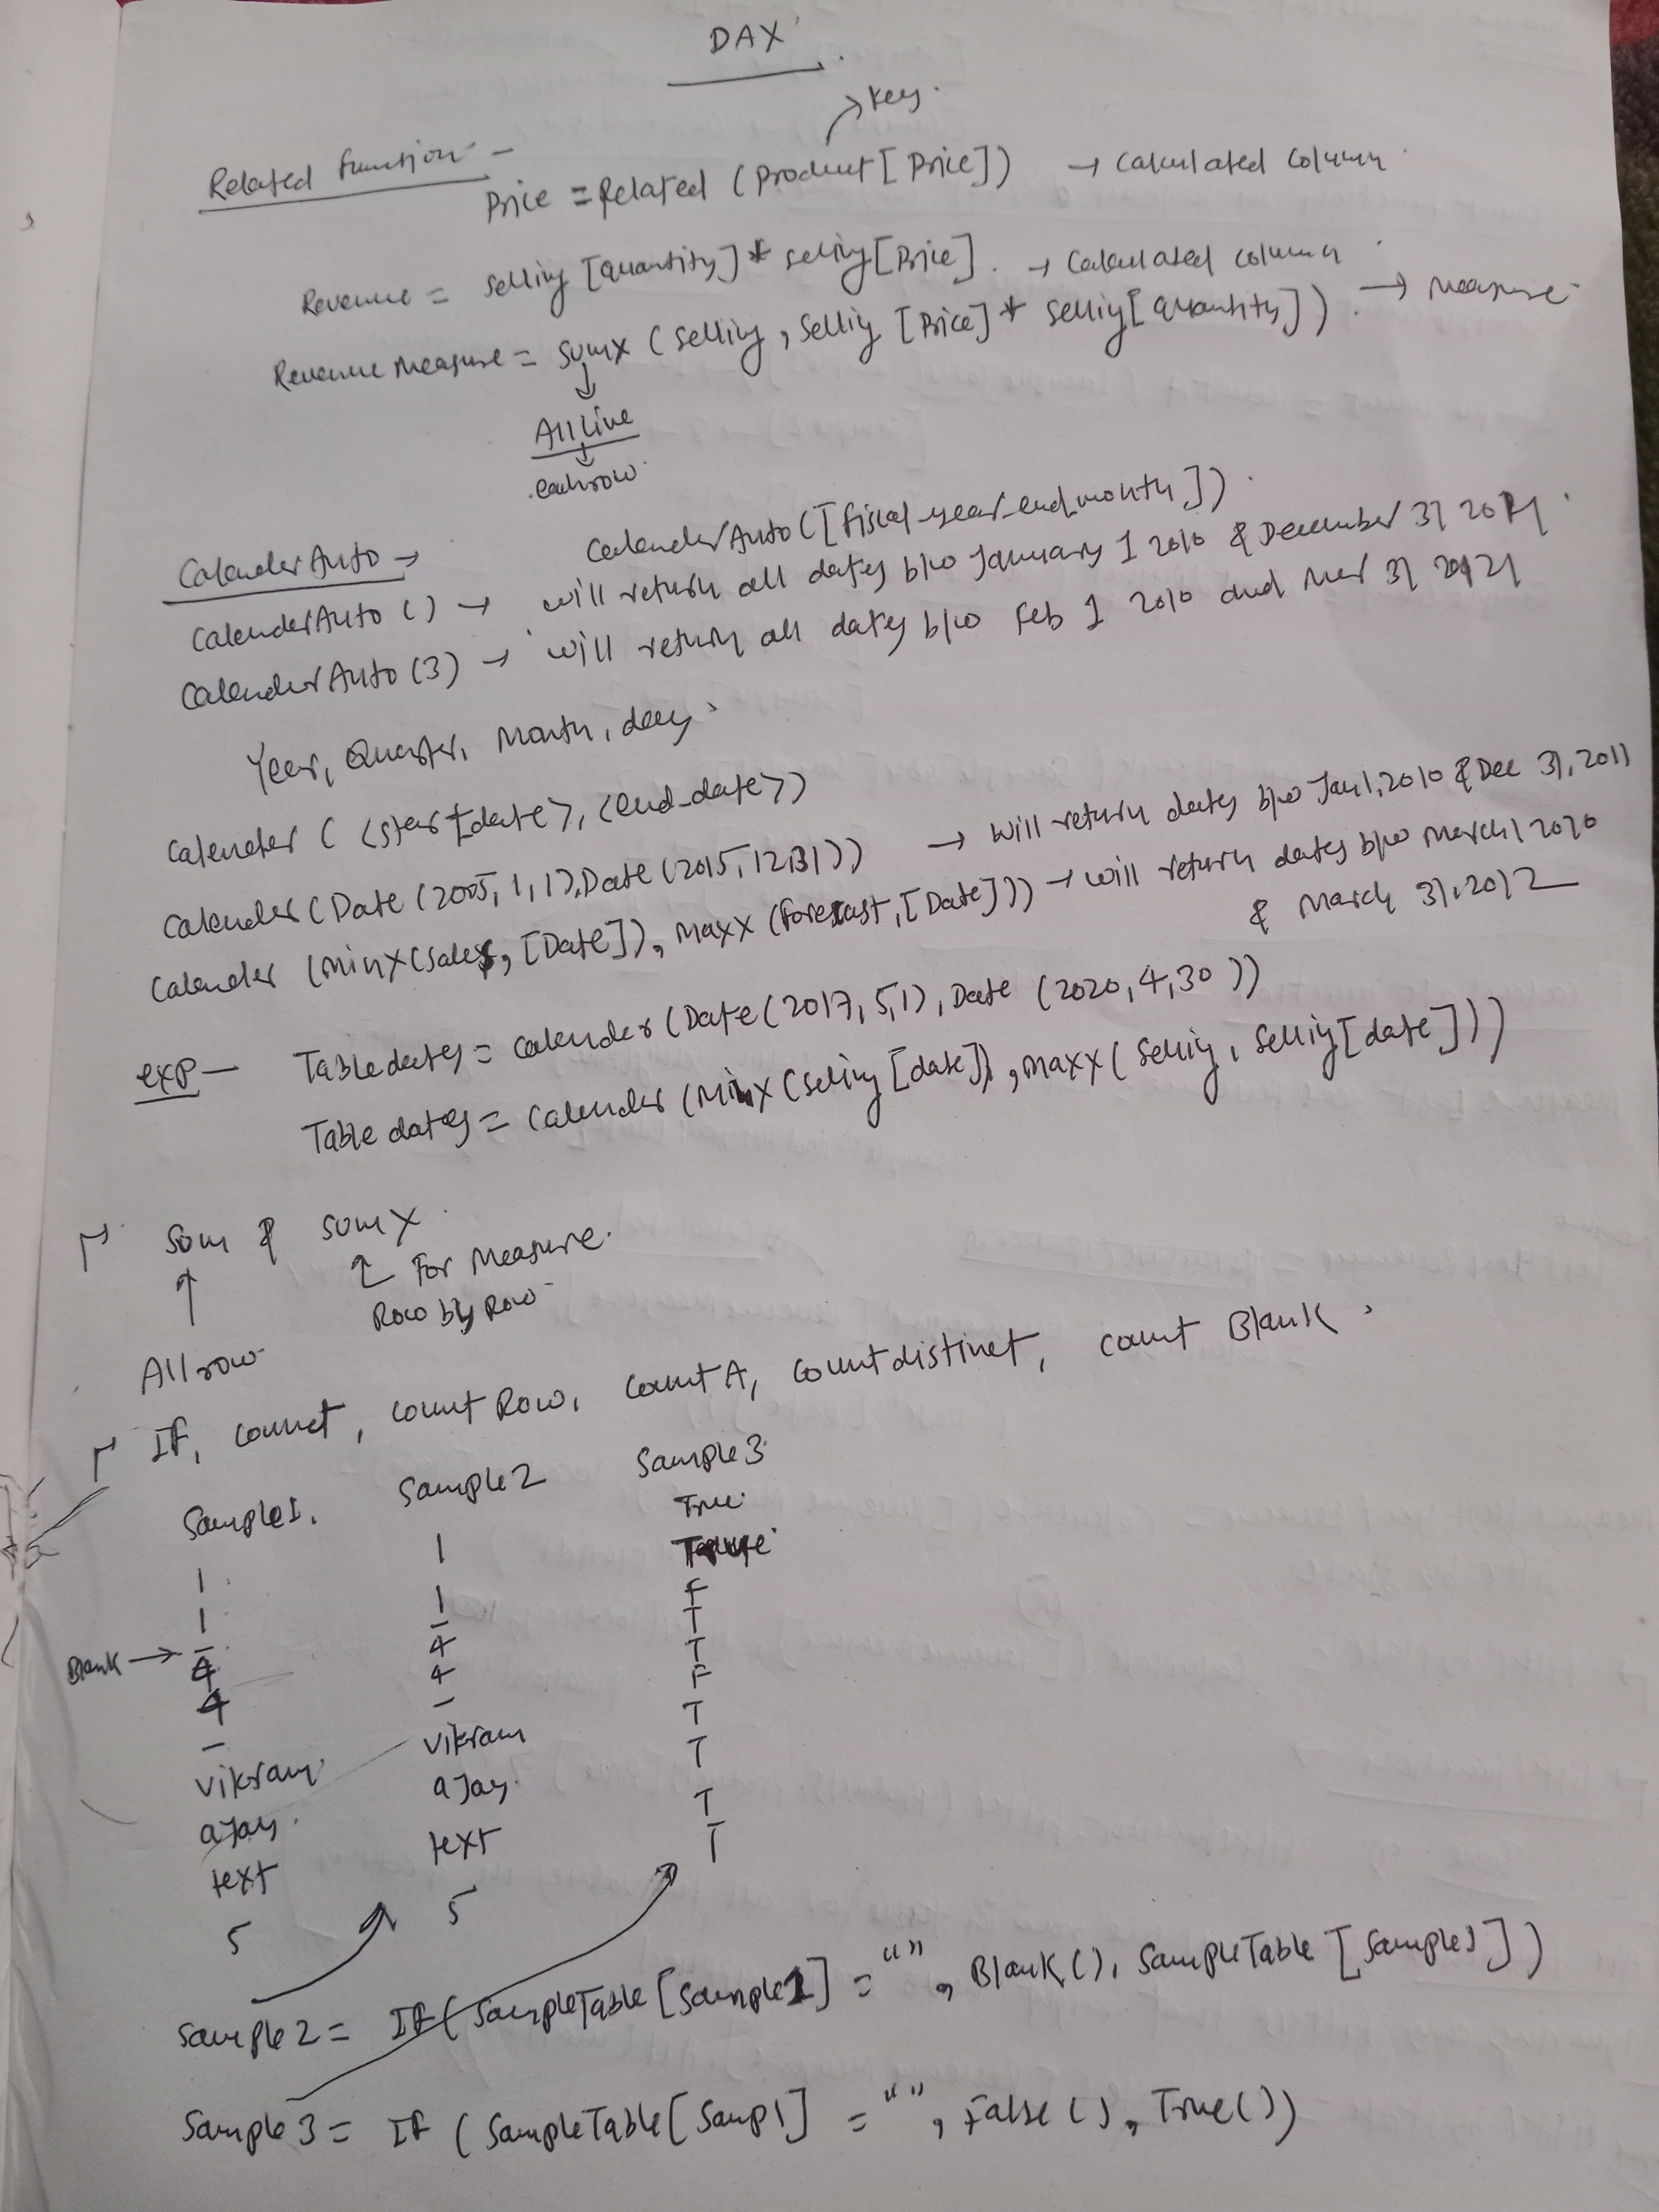 DAX
Key.
Related Function -
Price = Related (Product[Price]) → Calculated Column
Revenue = Selling [Quantity] * Selling[Price]. → Calculated Column
Revenue Measure = SUMX (Selling, Selling [Price] * Selling[Quantity]) → Measure
All Line
each row
CalenderAuto → CalenderAuto([fiscal_year_end_month]).
CalenderAuto () → will return all dates b/w January 1 2010 & December 31
CalenderAuto (3) → will return all dates b/w Feb 1 2010 and Mar 31
Year, Quarter, Month, day.
Calender ( <start_date>, <end_date>)
Calender (Date (2005, 1, 1), Date (2015, 12, 31)) → will return dates b/w Jan 1, 2010 & Dec 31, 2011
Calender (MinX(Sales, [Date]), MAXX (Forecast, [Date])) → will return dates b/w March 1 2010
& March 31, 2012
exp - Table dates = Calender (Date (2017, 5, 1), Date (2020, 4, 30))
Table dates = Calender (MinX (Selling [date]), MAXX (Selling, Selling[date]))
Sum & SumX
For Measure.
Row by Row
All row
IF, Count, Count Row, Count A, Countdistinct, Count Blank.
Sample1. Sample2 Sample3
True
1 1 True
1 1 F
Blank → - - T
4 4 T
4 4 F
- - T
vikram vikram T
ajay. ajay. T
text text T
5 5
Sample2 = IF (SampleTable[Sample1] = "", Blank(), SampleTable [Sample1])
Sample3 = IF (SampleTable[Samp1] = "", False (), True())